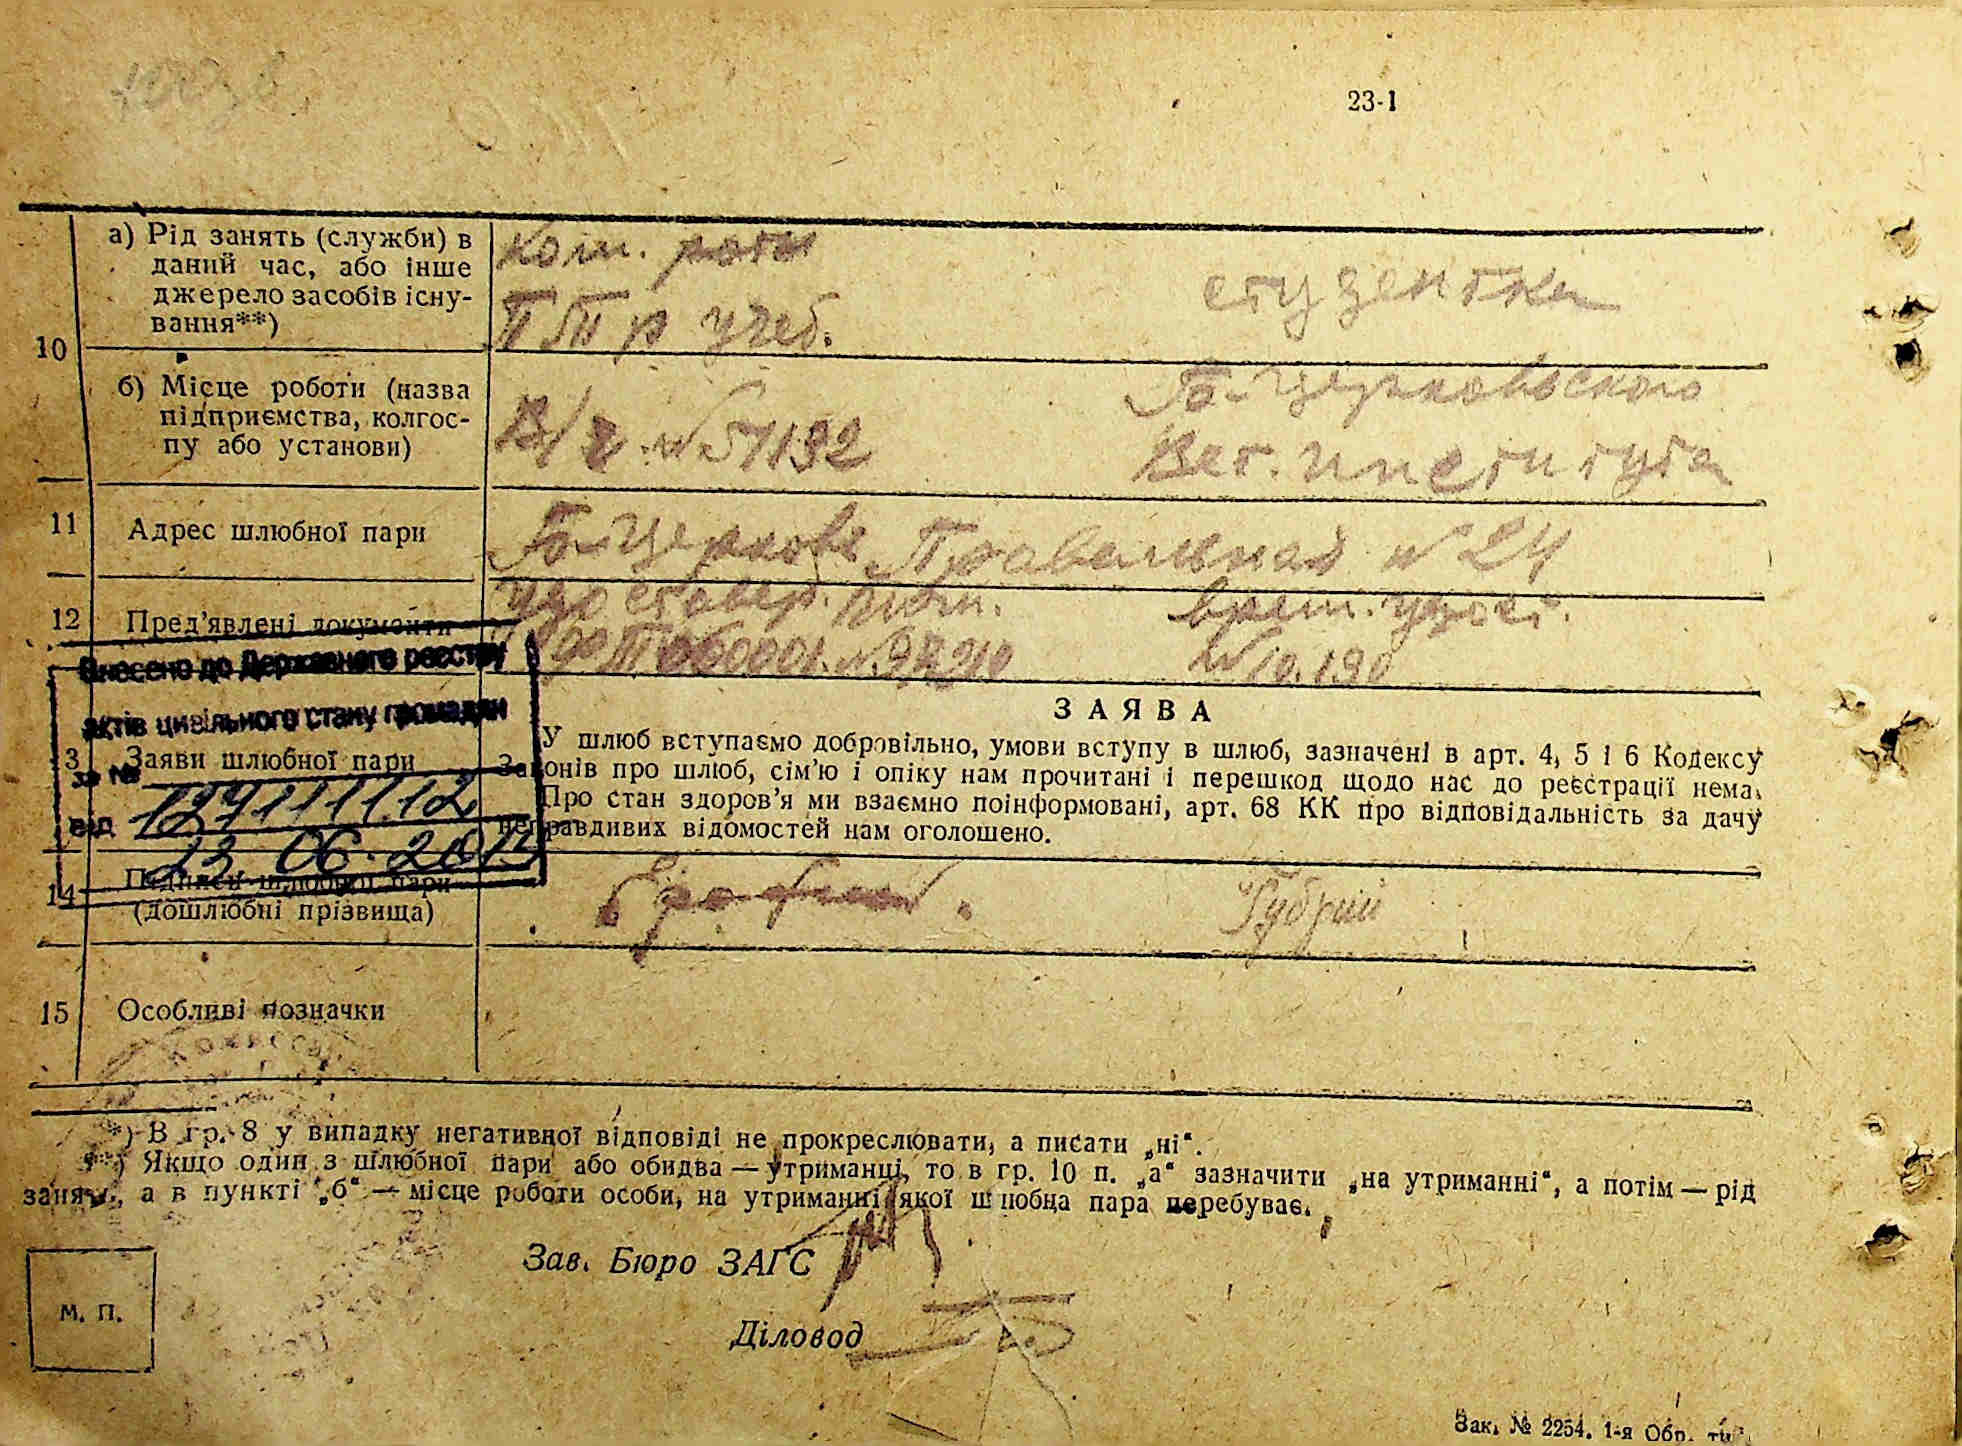 23-1
10
а) Рід занять (служби) в
даний час, або інше
джерело засобів існу-
вання**)
ком. роты
учеб.
студентка
б) Місце роботи (назва
підприємства, колгос-
пу або установи)
В/ч. №51132
Б-Церковского
Вет. института
11
Адрес шлюбної пари
Б-Церковь, №24
12
Пред'явлені документи
удостовер. личн.
врем. удост.
№10.190
Внесено до Державного реєстру
актів цивільного стану громадян
за №
від
3
Заяви шлюбної пари
ЗАЯВА
У шлюб вступаємо добровільно, умови вступу в шлюб, зазначені в арт. 4, 5 і 6 Кодексу
Законів про шлюб, сім'ю і опіку нам прочитані і перешкод щодо нас до реєстрації нема.
Про стан здоров'я ми взаємно поінформовані, арт. 68 КК про відповідальність за дачу
неправдивих відомостей нам оголошено.
14
Підписи шлюбної пари
(дошлюбні прізвища)
Губрий
15
Особливі позначки
*) В гр. 8 у випадку негативної відповіді не прокреслювати, а писати „ні“.
**) Якщо один з шлюбної пари або обидва — утриманці, то в гр. 10 п. „а“ зазначити „на утриманні“, а потім — рід
занять, а в пункті „б“ — місце роботи особи, на утриманні якої шлюбна пара перебуває.
Зав. Бюро ЗАГС
М. П.
Діловод
Зак. № 2254. 1-я Обр. тип.